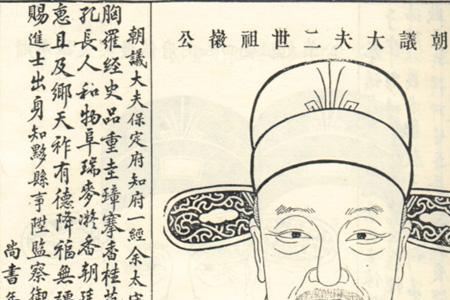 朝議大夫二世祖徵公
朝議大夫保定府知府一經余太守
胸羅經史品重圭璋搴香桂
孔長人和物阜瑞麥凝香朝廷
惠且及鄉天祚有德降福無疆
賜進士出身知黟縣事陞監察御
尚書年